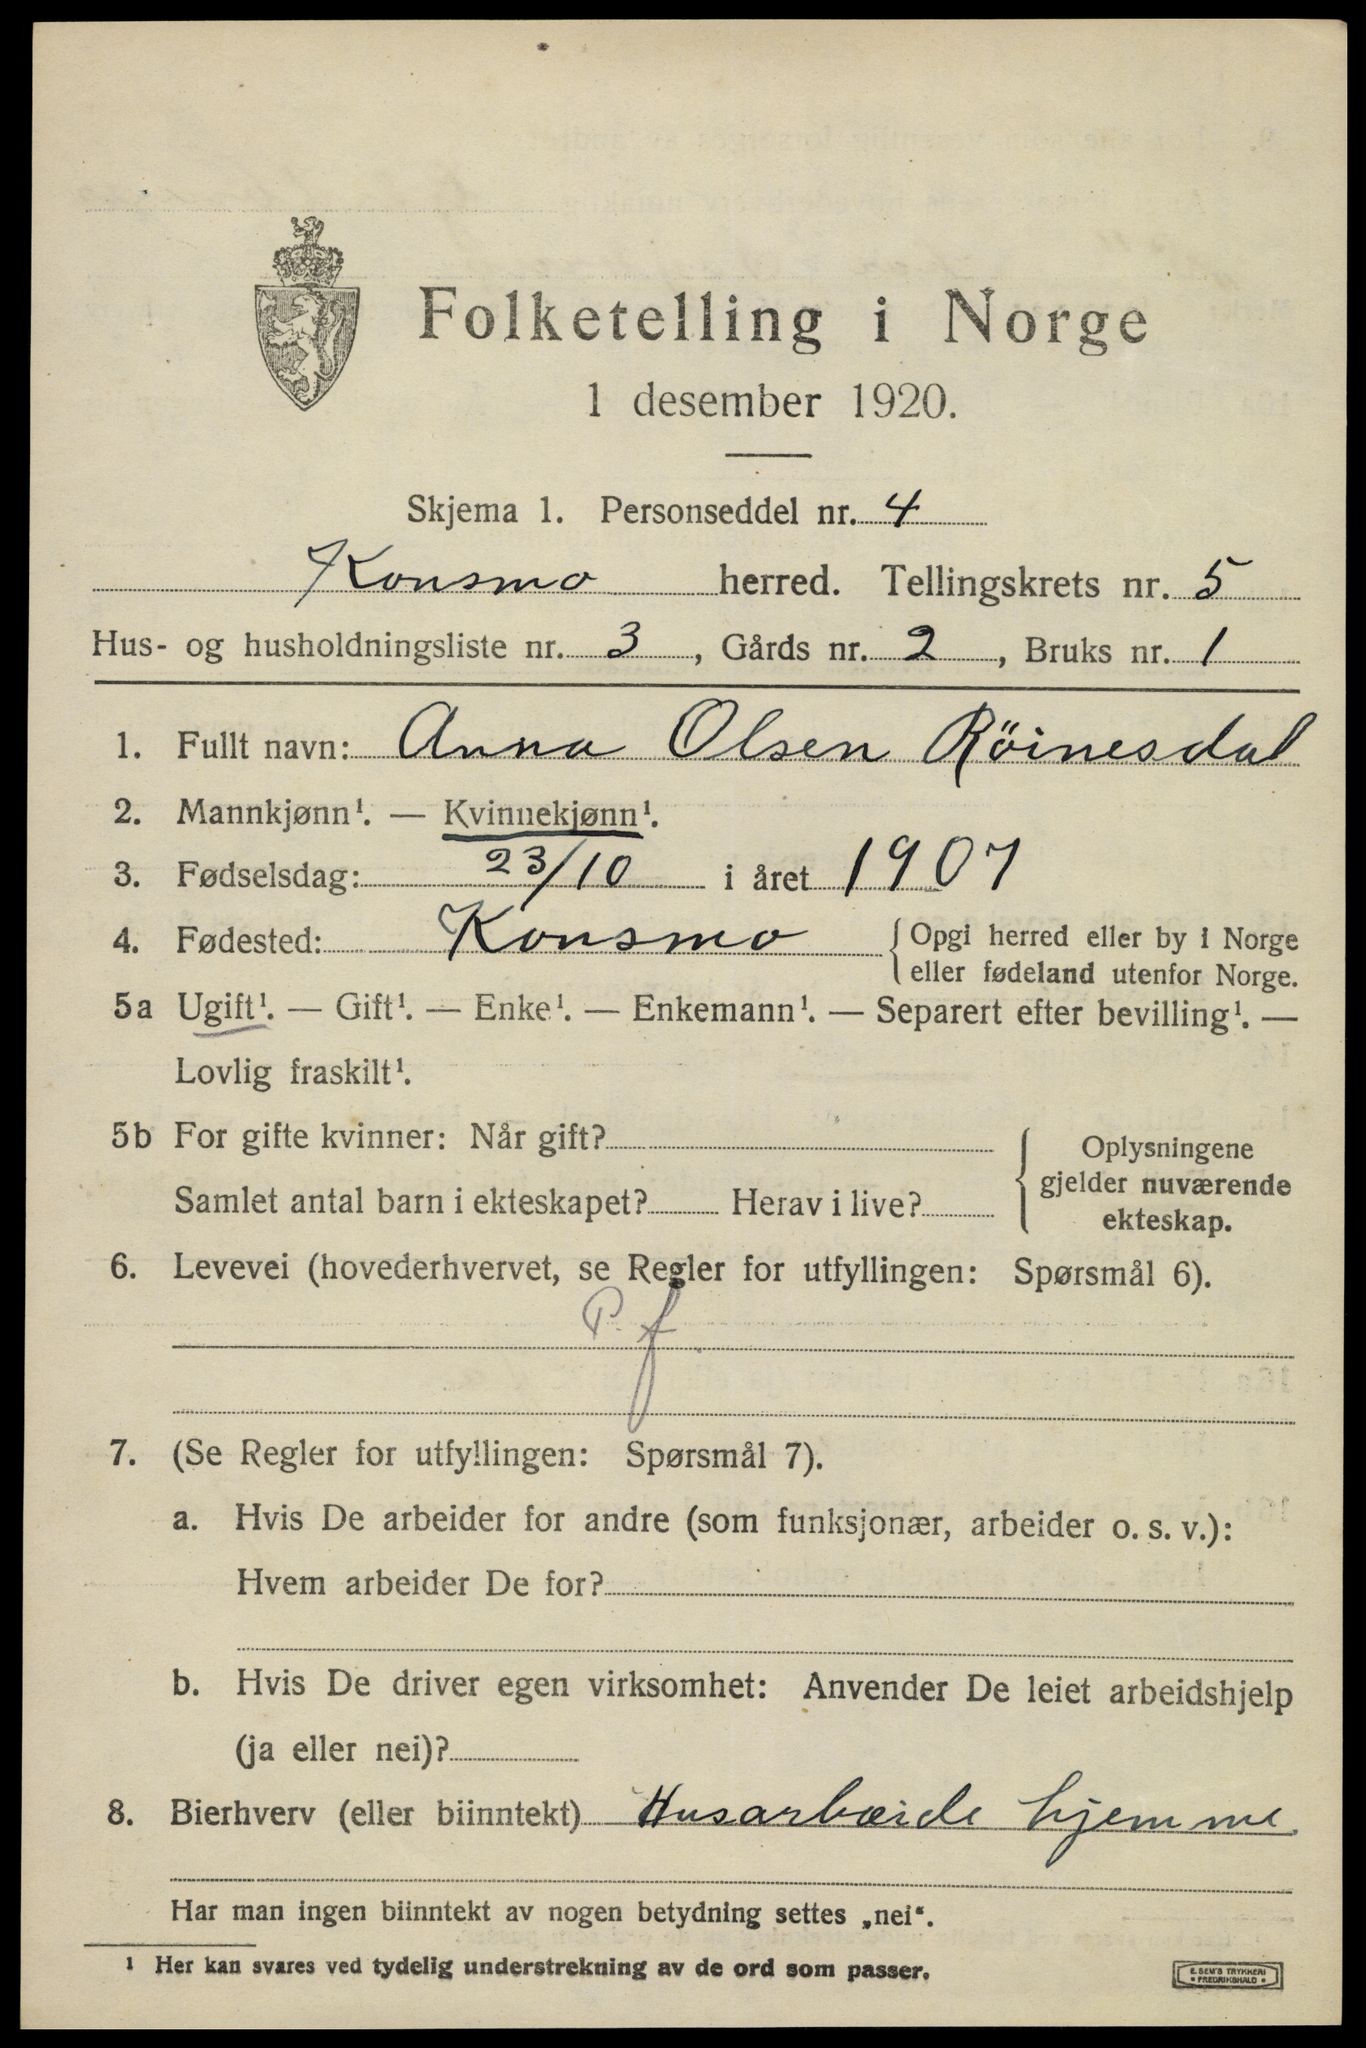 Folketelling i Norge
1 desember 1920.
Skjema 1. Personseddel nr. 4
Konsmo herred. Tellingskrets nr. 5
Hus- og husholdningsliste nr. 3, Gårds nr. 2, Bruks nr. 1
1. Fullt navn: Anna Olsen Röinesdal
2. Mannkjønn¹. — Kvinnekjønn¹.
3. Fødselsdag: 23/10 i året 1907
4. Fødested: Konsmo { Opgi herred eller by i Norge
eller fødeland utenfor Norge.
5a Ugift¹. — Gift¹. — Enke¹. — Enkemann¹. — Separert efter bevilling¹. —
Lovlig fraskilt¹.
5b For gifte kvinner: Når gift?
Samlet antal barn i ekteskapet? Herav i live?
{ Oplysningene
gjelder nuværende
ekteskap.
6. Levevei (hovederhvervet, se Regler for utfyllingen: Spørsmål 6).
P. f
7. (Se Regler for utfyllingen: Spørsmål 7).
a. Hvis De arbeider for andre (som funksjonær, arbeider o. s. v.):
Hvem arbeider De for?
b. Hvis De driver egen virksomhet: Anvender De leiet arbeidshjelp
(ja eller nei)?
8. Bierhverv (eller biinntekt) Husarbæide hjemme
Har man ingen biinntekt av nogen betydning settes „nei“.
¹ Her kan svares ved tydelig understrekning av de ord som passer.
E. SEM'S TRYKKERI
• FREDRIKSHALD •